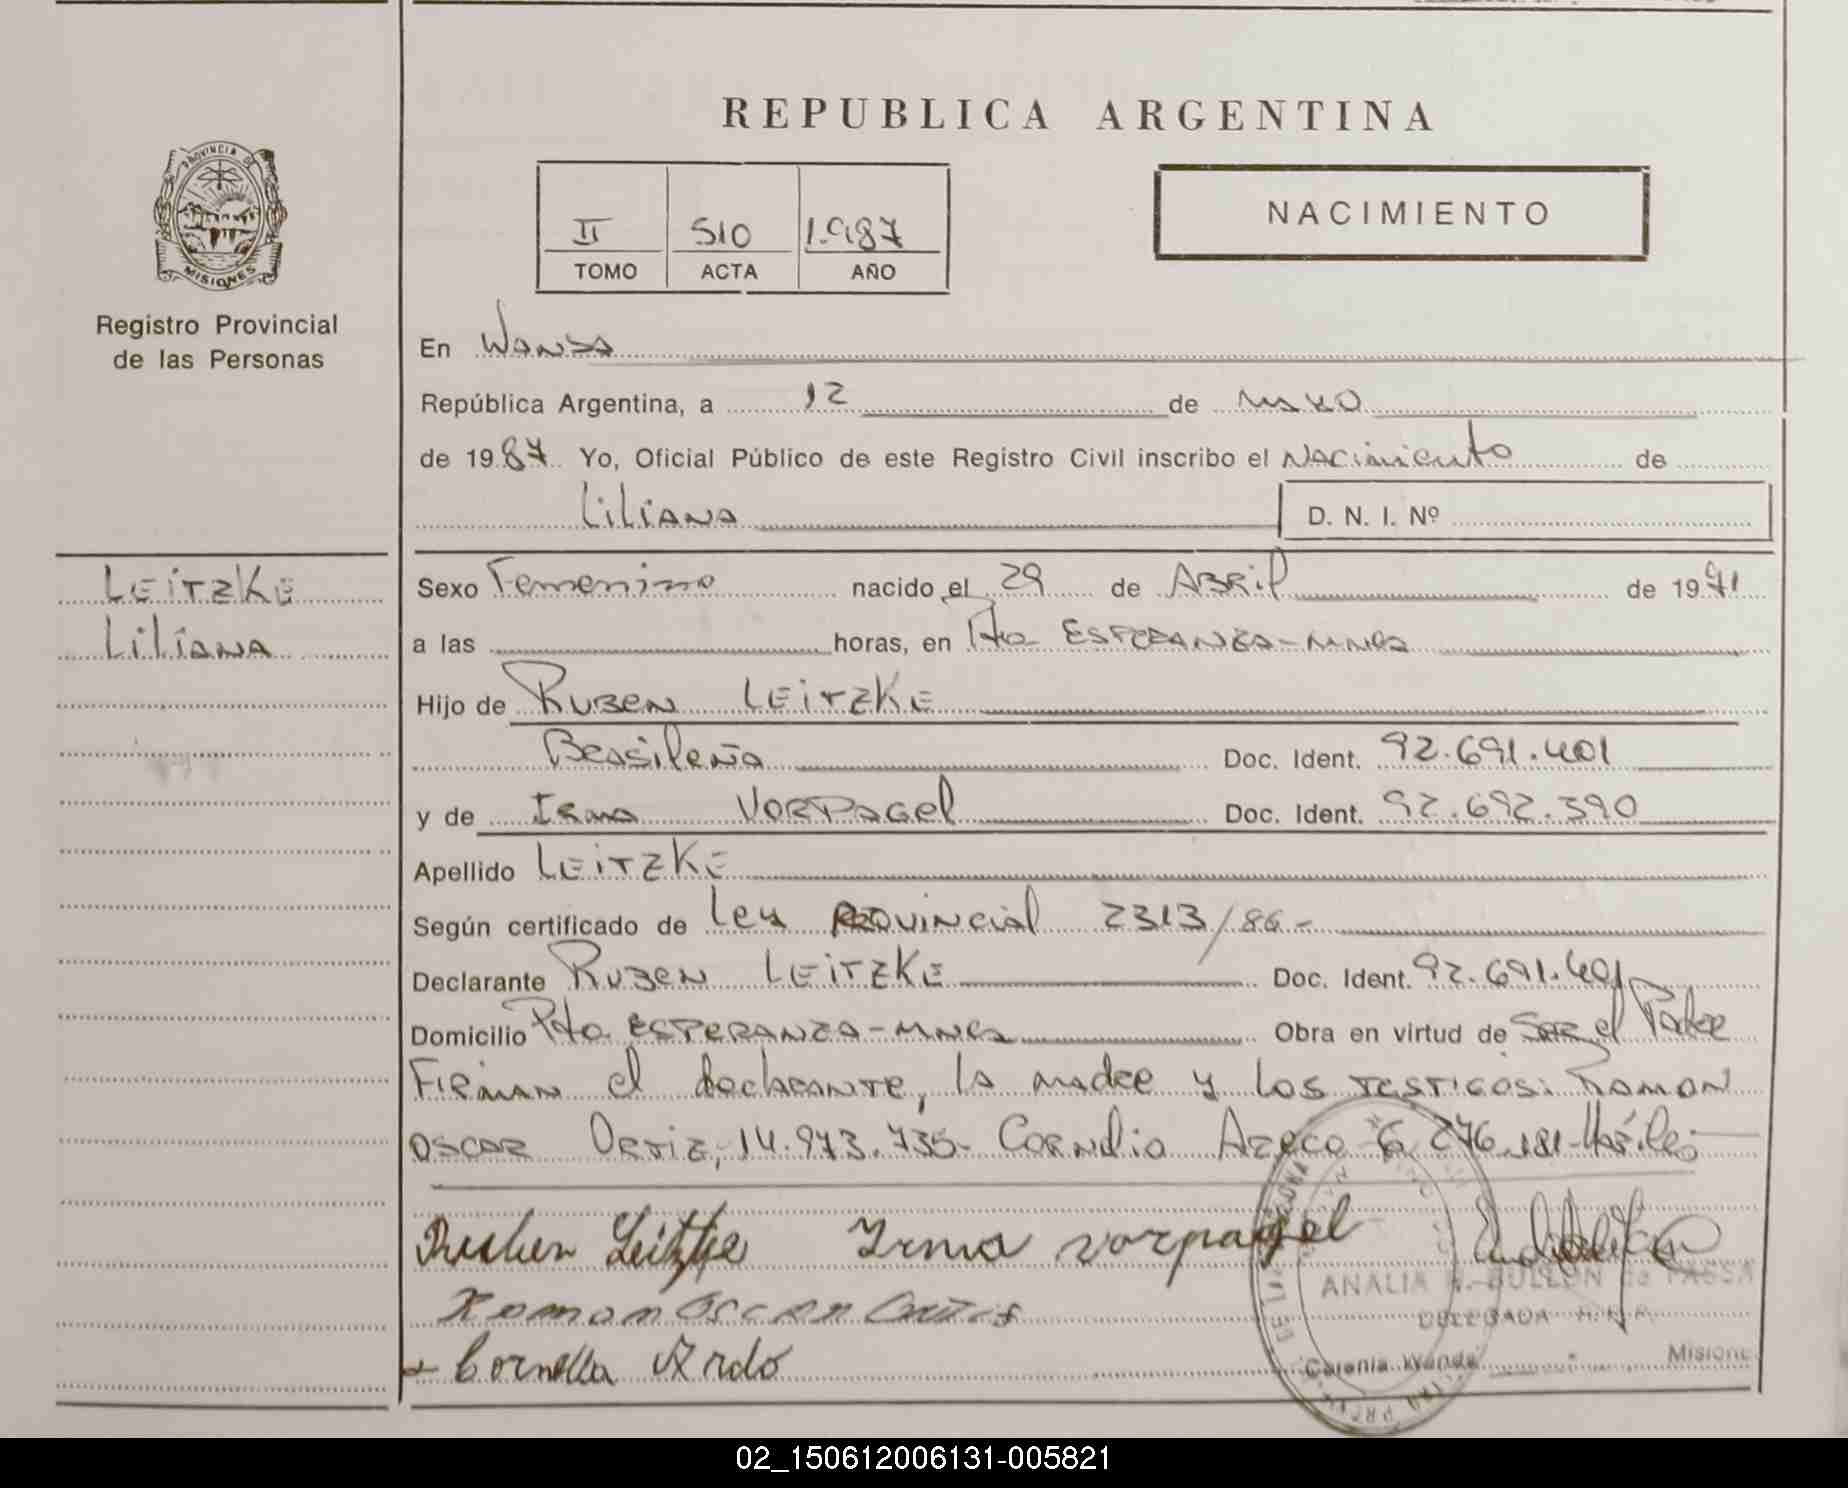 REPUBLICA ARGENTINA
PROVINCIA DE
MISIONES
Registro Provincial
de las Personas
II 510 1.987
TOMO ACTA AÑO
NACIMIENTO
En Wanda
República Argentina, a 12 de mayo
de 1987 Yo, Oficial Público de este Registro Civil inscribo el Nacimiento de
Liliana D. N. I. Nº
LEITZKE
Liliana
Sexo Femenino nacido el 29 de Abril de 1971
a las horas, en Pto. ESPERANZA-MNES
Hijo de Ruben LEITZKE
Brasileña Doc. Ident. 92.691.401
y de Irma VORPAGEL Doc. Ident. 92.692.390
Apellido LEITZKE
Según certificado de Ley PROVINCIAL 2313/86-
Declarante RUBEN LEITZKE Doc. Ident. 92.691.401
Domicilio Pto. ESPERANZA-MNES Obra en virtud de Ser el Padre
FIRMAN el declarante, la madre y los TESTIGOS: RAMON
OSCAR ORTIZ, 14.973.735- CORNELIA 6.276.181-Hábiles
Ruben Leitzke Irma vorpagel
Ramon Oscar Ortiz
ANALIA BULLON de
DELEGADA
Cornelia
Colonia Wanda Misiones
02_150612006131-005821